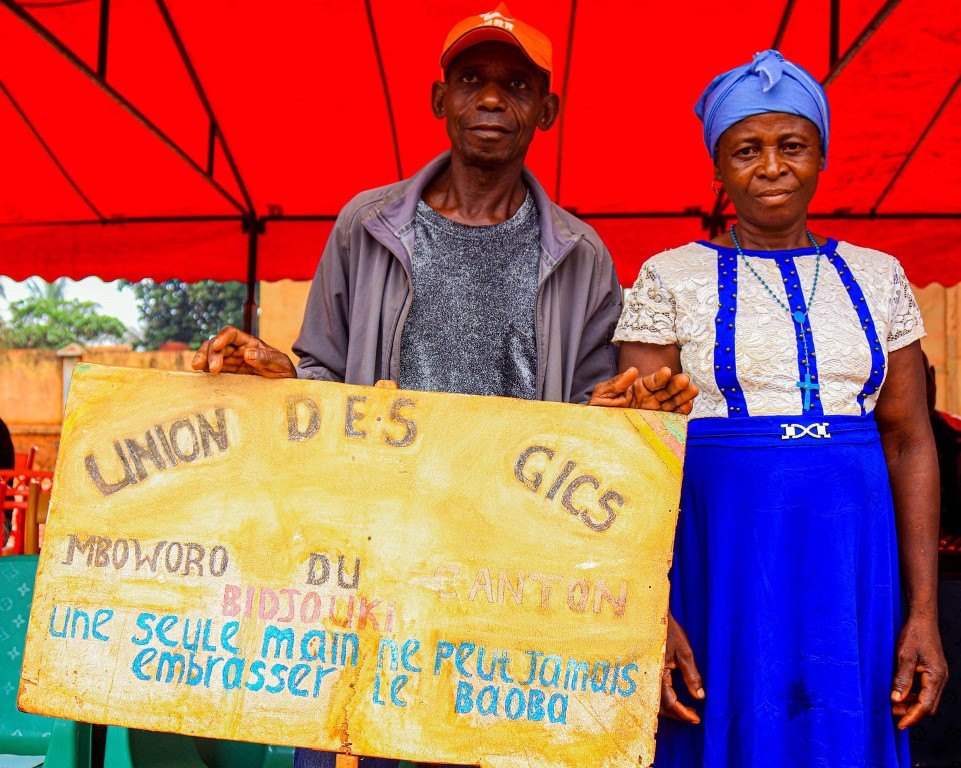 UNION DES GICS
MBOWORO DU CANTON
BIDJOUKI
une seule main ne peut jamais
embrasser le BAOBA